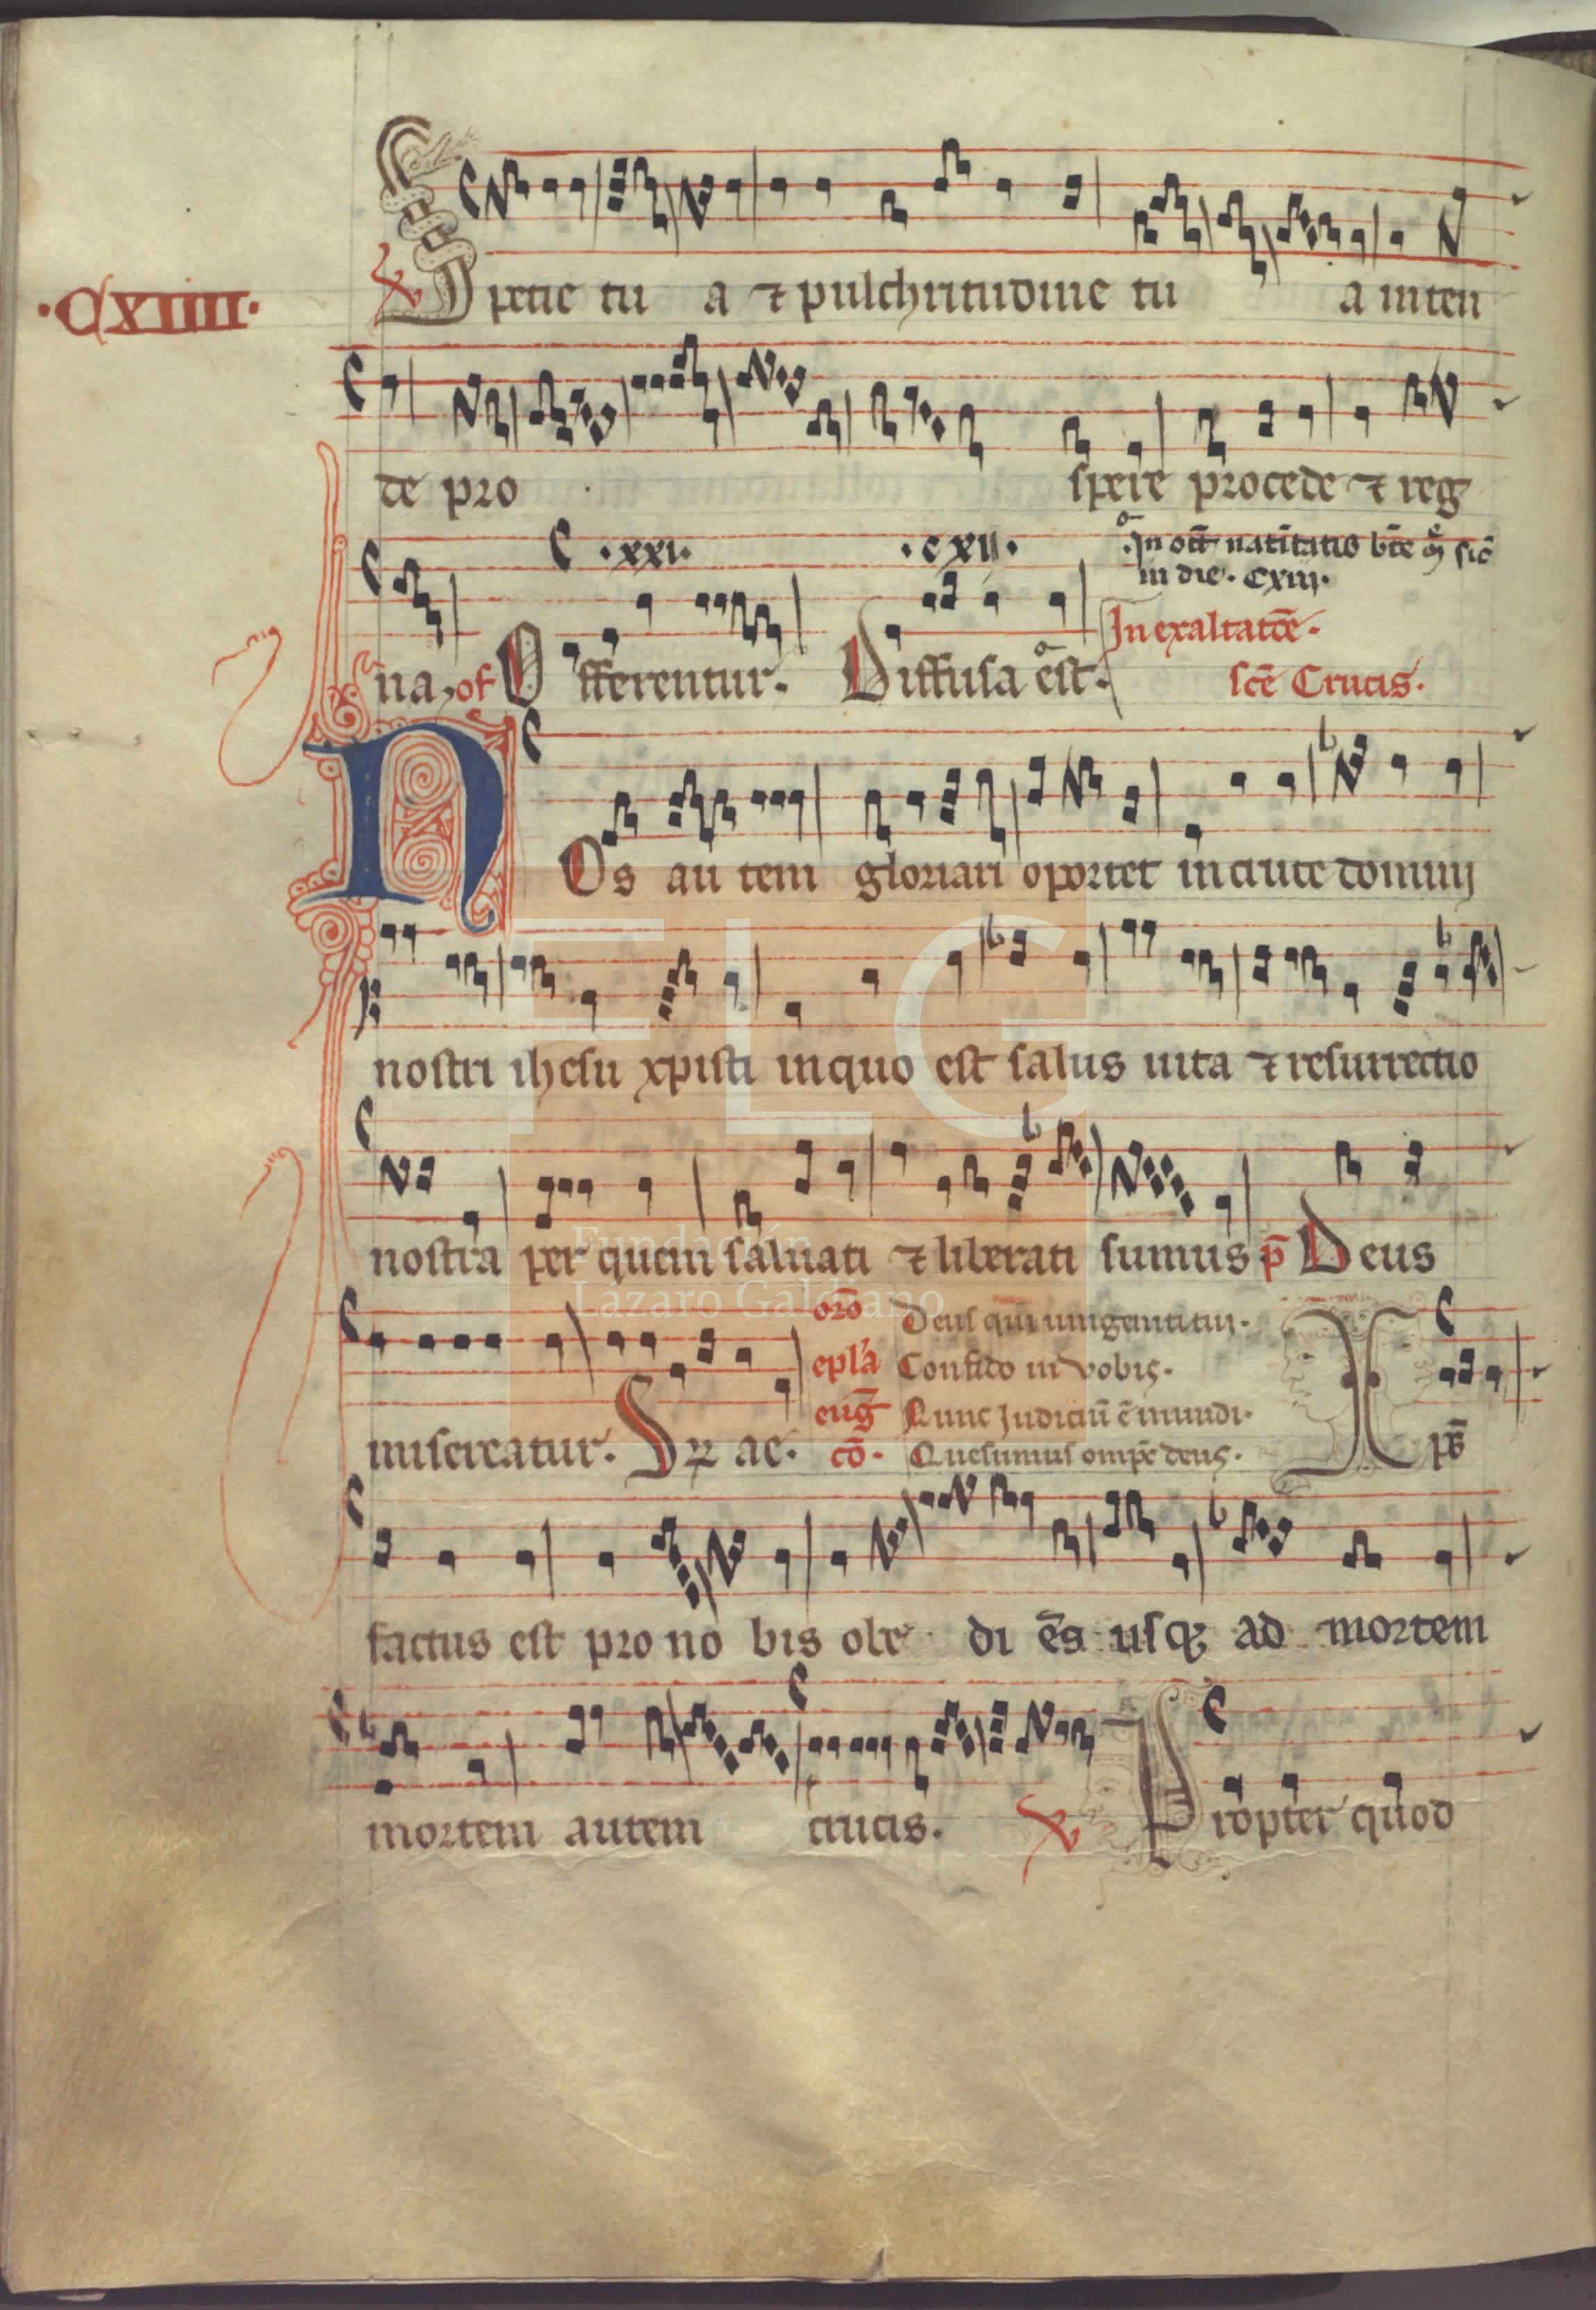 ·CXIIII·
℣ Specie tu a ⁊ pulchritudine tu a inten
de pro spere procede ⁊ reg
·xxi· ·cxii· In oct̄ natiuitatis bt̄e
in die · cxiij·
na, of Offerentur. Diffusa est. In exaltatōe·
sc̄e Crucis.
NOs au tem gloriari oportet in cruce domini
nostri ihesu xpisti in quo est salus uita ⁊ resurrectio
nostra per quem saluati ⁊ liberati sumus p̄ Deus
misereatur. ae. orō Deus qui unigeniti tui·
epl'a Confido in vobis·
eug̅ Nunc Judiciū ē mundi·
cō· Quesumus omp̄s deus· Xp̄s
factus est pro no bis obe di ēs usq; ad mortem
mortem autem crucis. ℣ Propter quod
FLG
Fundación
Lázaro Galdiano